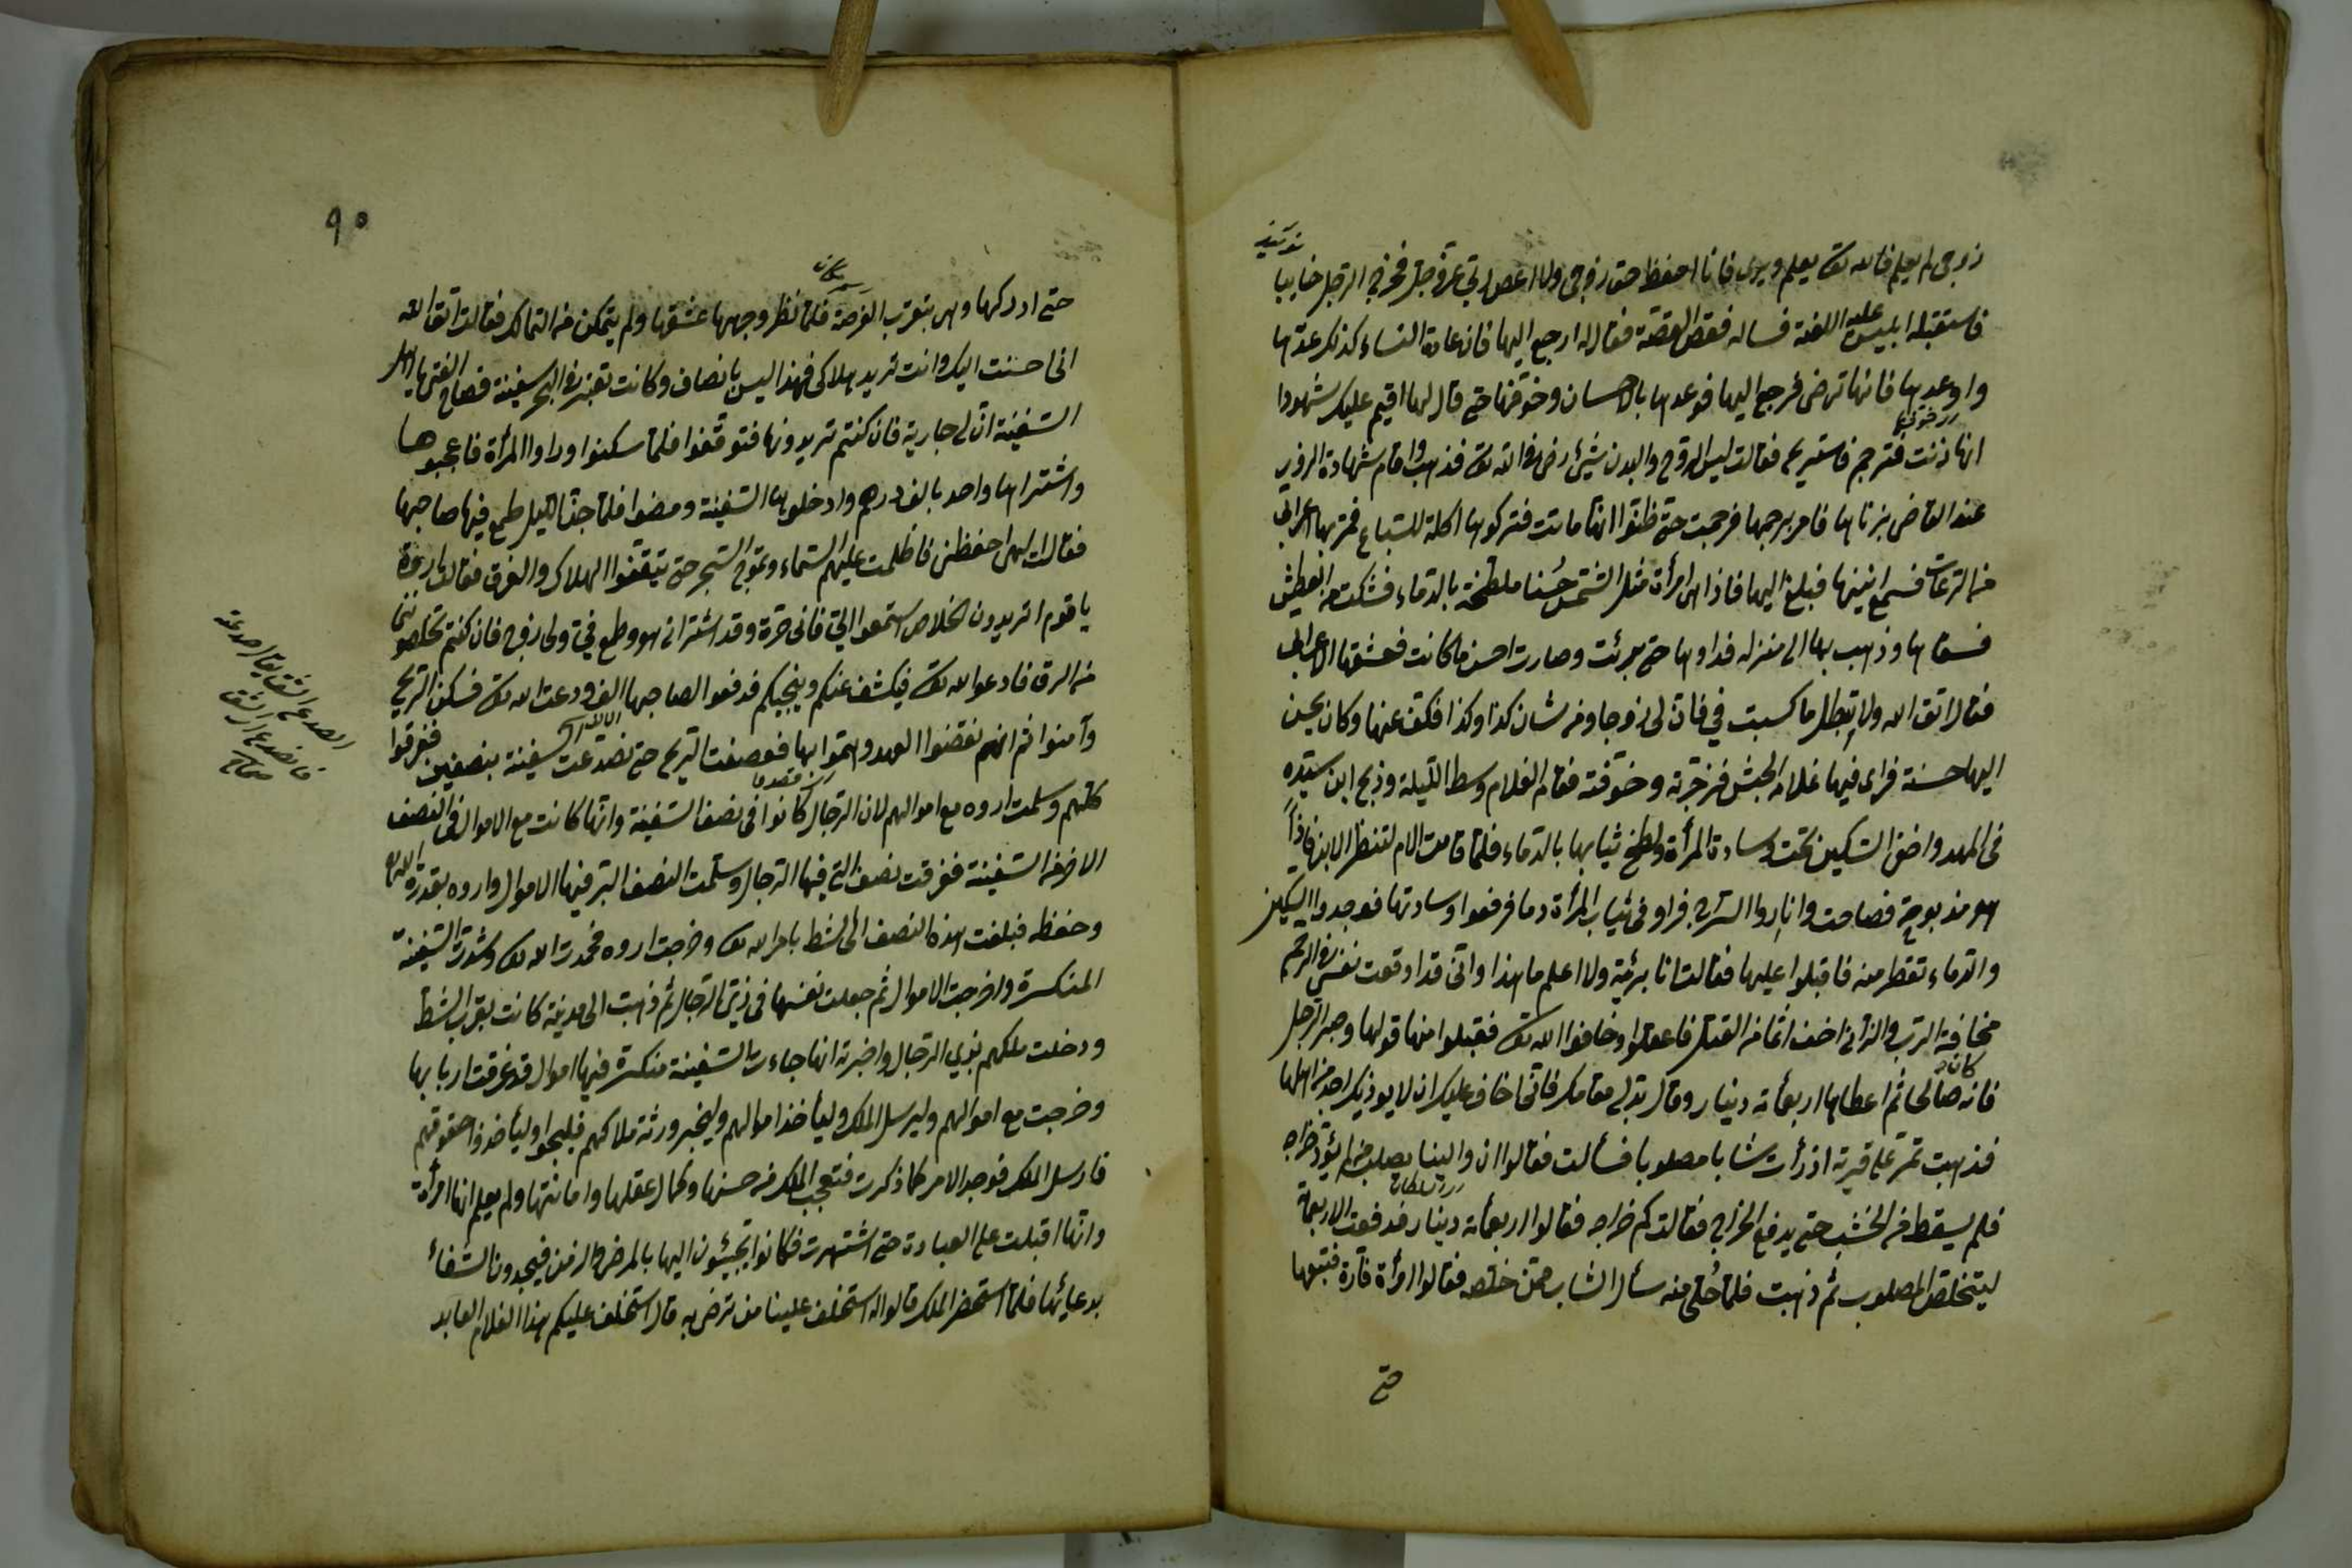 زوجى لم يعلم فالله تعالى يعلم ويرى فانا احفظ حق زوجى ولا اعصى ربى عز وجل فخرج الرجل خايبا
فاستقبله ابليس عليه اللعنة فساله فقص القصة فقال له ارجع اليها فان عادة النساء كذلك عدها
واوعدها فانها ترضى فرجع اليها فوعدها بالاحسان وخوفها حتى قال لها اقيم عليك شهودا
انها زنت فترجم فاستريح فقالت ليس الروح والبدن شيئ رضى الله تعالى فذهب واقام شهادة الزور
عند القاضى بزناها فامر برجمها فرجمت حتى ظنوا انها ماتت فتركوها اكلة للسباع فمر بها اعرابى
فسمع انينها فبلغ اليها فاذا هى امرأة مثل الشمس حسنا ملطخة بالدماء فشكت من العطش
فسقاها وذهب بها الى منزله فداوها حتى برئت وصارت احسن ما كانت فعشقها الاعرابى
فقالت اتق الله ولا تبطل ما كسبت فى فان لى زوجا ومن شان كذا وكذا فكف عنها وكان يحسن
اليها حسنة فراى فيها غلام الحبش فزجرته وخوفته فقام الغلام وسط الليلة وذبح ابن سيده
فى المهد واخفى السكين تحت وسادة المرأة ولطخ ثيابها بالدماء فلما قامت الام لتنظر الابن فاذا
هو مذبوح فصاحت وانارو السرج فراو فى ثياب المرأة دما فرفعوا وسادتها فوجدوا السكين
والدماء تقطر منه فاقبلوا عليها فقالت انا بريئة ولا اعلم ما هذا وانى قد اوقعت نفسى فى الرجم
مخافة الرب والزنا اخف اثما من القتل فاعقلوا وخافوا الله تعالى فقبلوا منها قولها وصبر الرجل
فانه كان صالحا ثم اعطاها اربعمائة دينار وقال بدلى مقامك فانى اخاف عليك ان لا يوذيك احد من اهلها
فذهبت تمر على قرية اذ رأت شابا مصلوبا فسألت فقالوا ان والينا يصلب من لم يؤد خراجه
فلم يسقط من الخشب حتى يدفع الخراج فقالت كم خراجه فقالوا اربعمائة دينار فدفعت الاربعمائة
ليتخلص المصلوب ثم ذهبت فلما خلى منه سأل الشاب عمن خلصه فقالوا امرأة فتبعها
حتى
٩٠
حتى ادركها وهى بقرب الفرضة فلما نظر وجهها عشقها ولم يتمكن من التمالك فقالت اتق الله
انى احسنت اليك وانت تريد هلاكى فهذا ليس بانصاف وكانت تعبر فى البحر سفينة فصاح الفتى يا اهل
السفينة ان لى جارية فان كنتم تريدونها فتوقفوا فلما سكنوا وراوا المرأة فاعجبوها
واشتراها واحد بالف درهم وادخلوها السفينة ومضوا فلما جن الليل طمع فيها صاحبها
فقالت الهى احفظنى فاظلمت عليهم السماء وتموج البحر حتى تيقنوا الهلاك والغرق فقالت اروه
يا قوم اتريدون الخلاص استمعوا الى فانى حرة وقد اشترانى هو وطمع فى ولى زوج فان كنتم تخلصوننى
من الرق فادعو الله تعالى فيكشف عنكم وينجيكم فدفعوا لصاحبها الف ودعت الله تعالى فسكن الريح
وآمنوا ثم انهم نقضوا العهد وهموا بها فعصفت الريح حتى تصدعت سفينة بنصفين فغرقوا
كلهم وسلمت اروه مع اموالهم لان الرجال كانوا فى نصف السفينة وانها كانت مع الاموال فى النصف
الاخر من السفينة فغرقت نصف التى فيها الرجال وسلمت النصف التى فيها الاموال واروه بقدرة الله تعالى
وحفظه فبلغت هذه النصف الى الشط بامر الله تعالى وخرجت اروه فحمدت الله تعالى وشدت السفينة
المنكسرة واخرجت الاموال ثم جعلت نفسها فى زى الرجال ثم ذهبت الى مدينة كانت بقرب الشط
ودخلت ملكهم بزى الرجال واخبرته انها جاءت السفينة منكسرة فيها اموال قد غرقت اربابها
وخرجت مع اموالهم وليرسل الملك وليأخذ اموالهم وليخبر ورثة ملاكهم فليجوا وليأخذوا حقوقهم
فارسل الملك فوجد الامر كما ذكرت فتعجب الملك من حسنها وكمال عقلها وامانتها ولم يعلم انها امرأة
وانها اقبلت على العبادة حتى اشتهرت فكانوا يجيئون اليها بالمرضى والزمن فيجدون الشفاء
بدعائها فلما استحضر الملك قالوا له استخلف علينا من ترضى به قال استخلف عليكم هذا الغلام العابد
الصدع الشق يقال صدعته
فانصدع اى انشق
صحاح